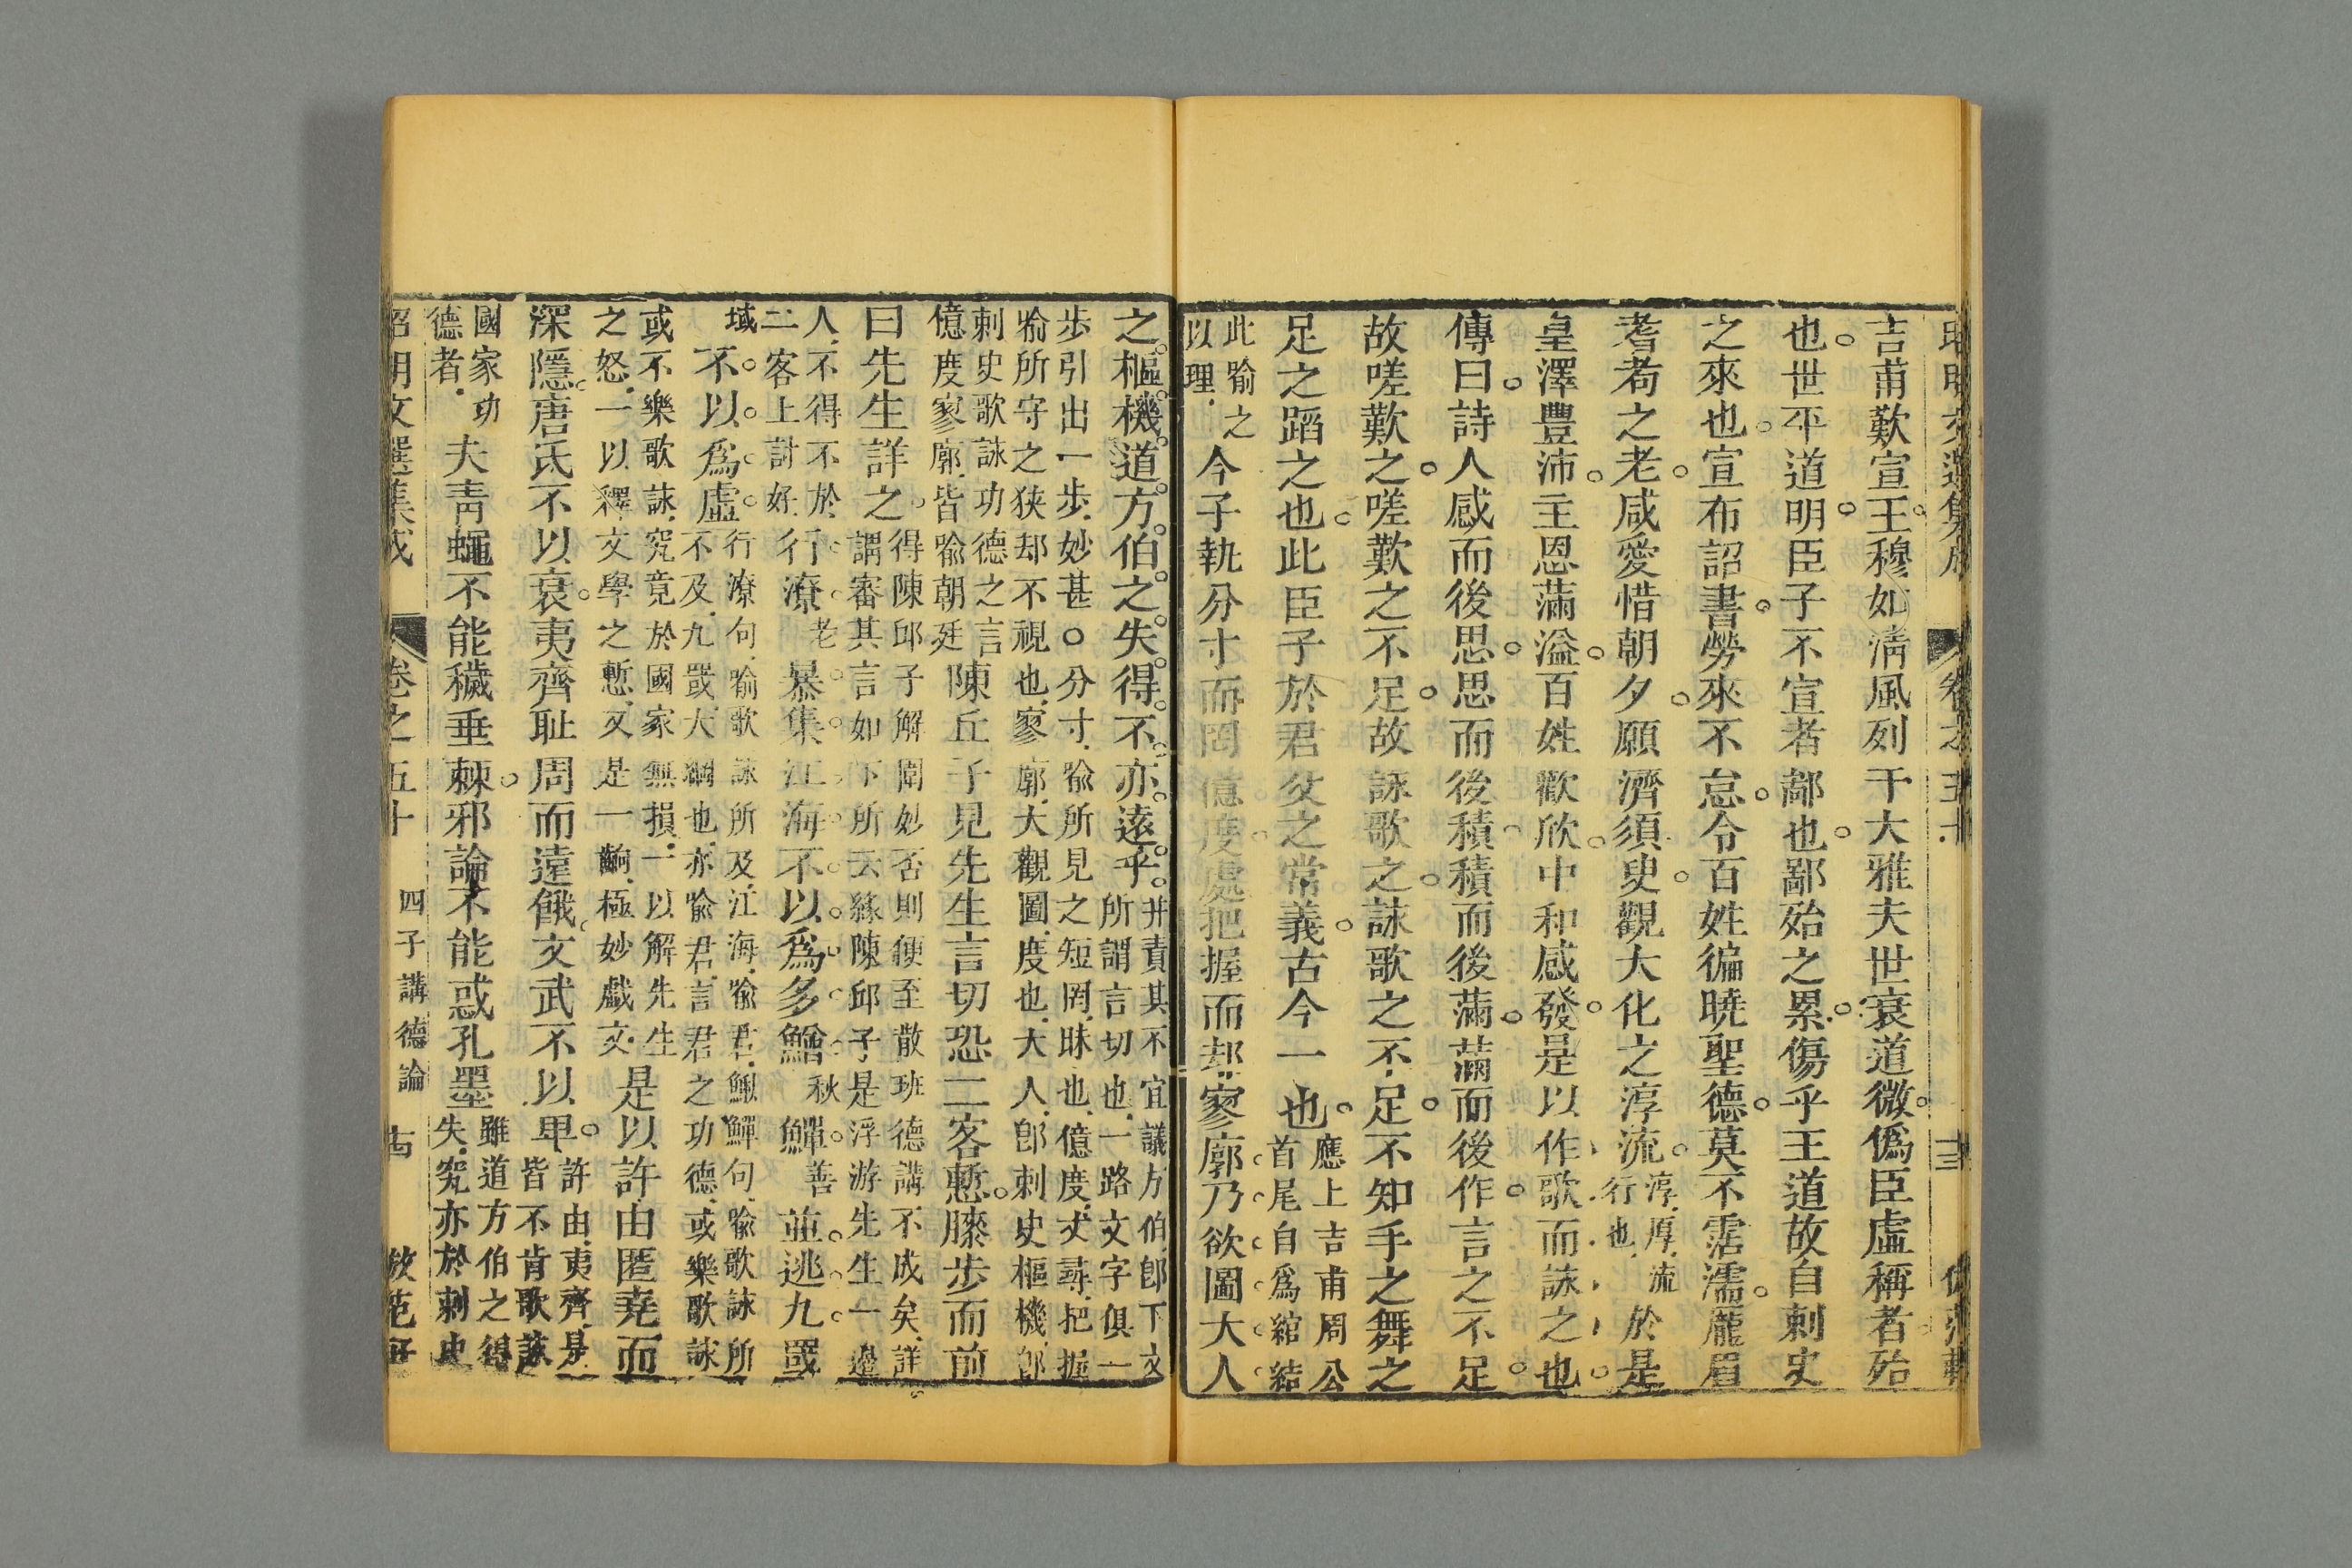 昭明文選集成 卷之五十 十三
吉甫歎宣王穆如淸風列于大雅夫世衰道微僞臣虛稱者殆
也世平道明臣子不宣者鄙也鄙殆之累傷乎王道故自刺史
之來也宣布詔書勞來不怠令百姓徧曉聖德莫不霑濡厖眉
耆耇之老咸愛惜朝夕願濟須臾觀大化之淳流淳厚流行也於是
皇澤豐沛主恩滿溢百姓歡欣中和感發是以作歌而詠之也
傳曰詩人感而後思思而後積積而後滿滿而後作言之不足
故嗟歎之嗟歎之不足故詠歌之詠歌之不足不知手之舞之
足之蹈之也此臣子於君父之常義古今一也應上吉甫周公首尾自爲綰結
此喻之以理今子執分寸而罔億度處把握而却寥廓乃欲圖大人
之樞機道方伯之失得不亦遠乎幷責其不宜議方伯卽下文所謂言切也一路文字俱一
步引出一步妙甚○分寸喻所見之短罔昧也億度丈尋把握
喻所守之狹却不視也寥廓大觀圖度也大人卽刺史樞機卽
刺史歌詠功德之言億度寥廓皆喻朝廷陳丘子見先生言切恐二客慙膝步而前
曰先生詳之得陳邱子解圍妙否則便至散班德講不成矣詳謂審其言如下所云緣陳邱子是浮游先生一邊
人不得不於二客上討好行潦老暴集江海不以爲多鰌秋鱓善並逃九罭
域不以爲虛行潦句喻歌詠所及江海喻君鰌鱓句喻歌詠所不及九罭大網也亦喻君言君之功德或樂歌詠
或不樂歌詠究竟於國家無損一以解先生之怒一以釋文學之慙又是一齣極妙戲文是以許由匿堯而
深隱唐氏不以衰夷齊恥周而遠餓文武不以卑許由夷齊是皆不肯歌詠
國家功德者夫靑蠅不能穢垂棘邪論不能惑孔墨雖道方伯之得失究亦於刺史
昭明文選集成 卷之五十 四子講德論 十四